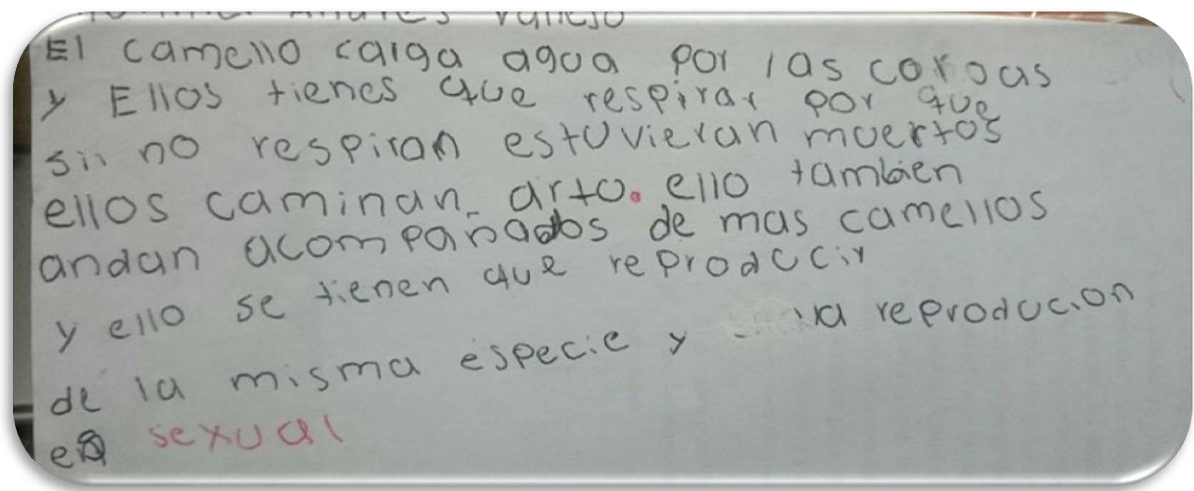 El camello carga agua por las coroas
y Ellos tienes que respirar por que
sii no respiran estuvieran muertos
ellos caminan arto. ello tambien
andan acompanados de mas camellos
y ello se tienen que reproduccir
de la misma especie y la reproducion
es sexual